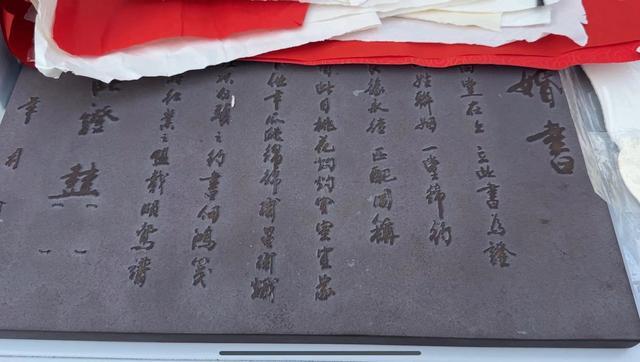 婚書
堂在上 立此書為證
姓聯姻 一堂締約
緣永締 匹配同稱
此日桃花灼灼宜室宜家
年瓜瓞綿綿爾昌爾熾
以白頭之約書向鴻箋
紅葉之盟載明鴛譜
此證
年 月